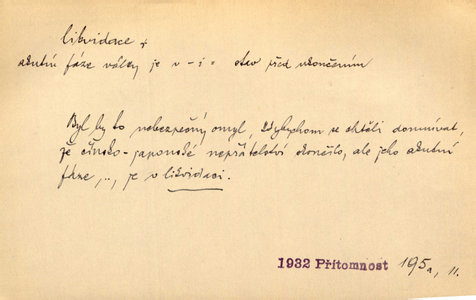 likvidace +
akutní fáze války je v - i = stav před ukončením
Byl by to nebezpečný omyl, kdybychom se chtěli domnívat,
že čínsko-japonské nepřátelství skončilo, ale jeho akutní
fáze, .., je v likvidaci.
1932 Přítomnost 195a, 11.